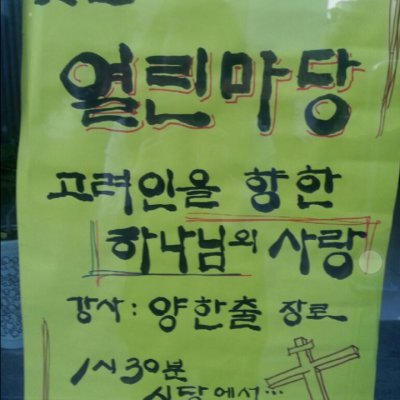 열린마당
고려인을 향한
하나님의 사랑
강사 : 양한출 장로
1시30분
식당에서...